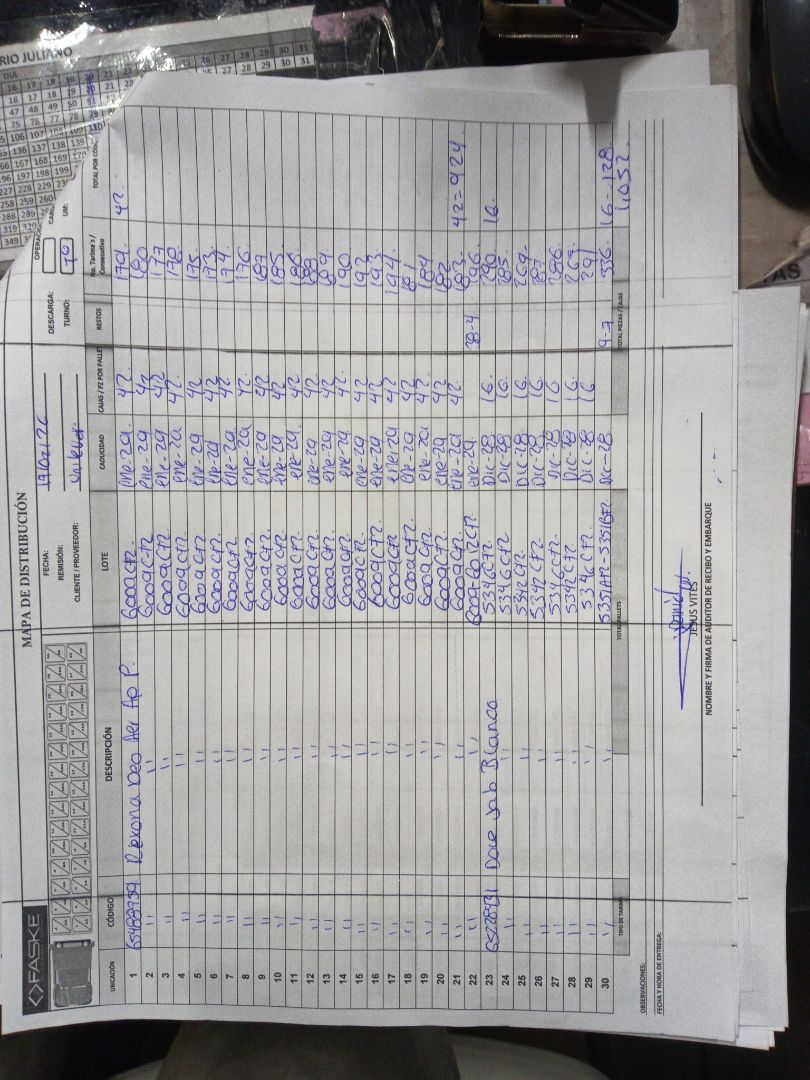 <>FASKE
MAPA DE DISTRIBUCIÓN
FECHA: 17/02/26
REMISIÓN:
CLIENTE / PROVEEDOR: Unilever.
DESCARGA:
TURNO:
UM:
UBICACIÓN CÓDIGO DESCRIPCIÓN LOTE CADUCIDAD CAJAS / PZ POR PALLET RESTOS No. Tarima's / Consecutivo
1 65488939 Rexona Deo Aer Ap P. 6009C72. ene-29 42 179. 42.
2 " " 6009C72 ene-29 42 180
3 " " 6009C72. ene-29 42 177
4 " " 6009C72. ene-29 42. 178.
5 " " 6009C72 ene-29 42 175
6 " " 6009C72. ene-29 42 173
7 " " 6009C72. ene-29 42 174.
8 " " 6009C72. ene-29 42. 176.
9 " " 6009C72. ene-29 42 187
10 " " 6009C72. ene-29 42 185
11 " " 6009C72. ene-29. 42. 186
12 " " 6009C72. ene-29 42 188
13 " " 6009C72. ene-29 42 189
14 " " 6009C72. ene-29 42. 190
15 " " 6009C72 ene-29 42 192
16 " " 6009C72. ene-29 42 193
17 " " 6009C72 ene-29 42 194
18 " " 6009C72. ene-29 42 181
19 " " 6009C72. ene-29 42. 184
20 " " 6009C72 ene-29 42 182
21 " " 6009C72. ene-29 42. 183. 42=924
22 " " 6009-6012C72 ene-29. 38-4. 296.
23 65228931 Dove Jab Blanco 5346C72 Dic-28 16. 290 16.
24 " " 5346C72 Dic-28 16. 285
25 " " 5342C72. Dic-28 16. 269-
26 " " 5342C72. Dic-28 16
27 " " 5346C72. Dic-28 16 286
28 " " 5342C72 Dic-28 16.
29 " " 5346C72. Dic-28 16 291
30 " " Dic-28 9-7 336. 16=128
1,052
TOTAL PALLETS
TIPO DE TARIMA
TOTAL PIEZAS / CAJAS
OBSERVACIONES:
FECHA Y HORA DE ENTREGA:
JESUS VITES
NOMBRE Y FIRMA DE AUDITOR DE RECIBO Y EMBARQUE